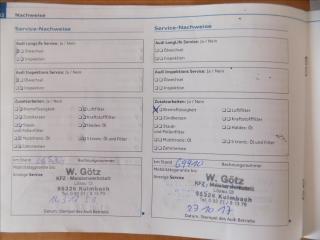 Nachweise
Service-Nachweise
Audi LongLife Service: Ja / Nein
Ölwechsel
Inspektion
Audi Inspektions Service: Ja / Nein
Ölwechsel
Inspektion
Zusatzarbeiten: Ja / Nein
Bremsflüssigkeit
Luftfilter
Zündkerzen
Kraftstofffilter
Staub-
und Pollenfilter
Haldex: Öl
Multitronic: Öl
S tronic: Öl und Filter
Zahnriemen
km Stand
Rechnungsnummer
Mobilitätsgarantie bis
Anzeige Service
W. Götz
KFZ - Meisterwerkstatt
95326 Kulmbach
Datum, Stempel des Audi Betriebs
Service-Nachweise
Audi LongLife Service: Ja / Nein
Ölwechsel
Inspektion
Audi Inspektions Service: Ja / Nein
Ölwechsel
Inspektion
Zusatzarbeiten: Ja / Nein
Bremsflüssigkeit
Luftfilter
Zündkerzen
Kraftstofffilter
Staub-
und Pollenfilter
Haldex: Öl
Multitronic: Öl
S tronic: Öl und Filter
Zahnriemen
km Stand
Rechnungsnummer
Mobilitätsgarantie bis
Anzeige Service
W. Götz
KFZ - Meisterwerkstatt
95326 Kulmbach
27.10.17
Datum, Stempel des Audi Betriebs